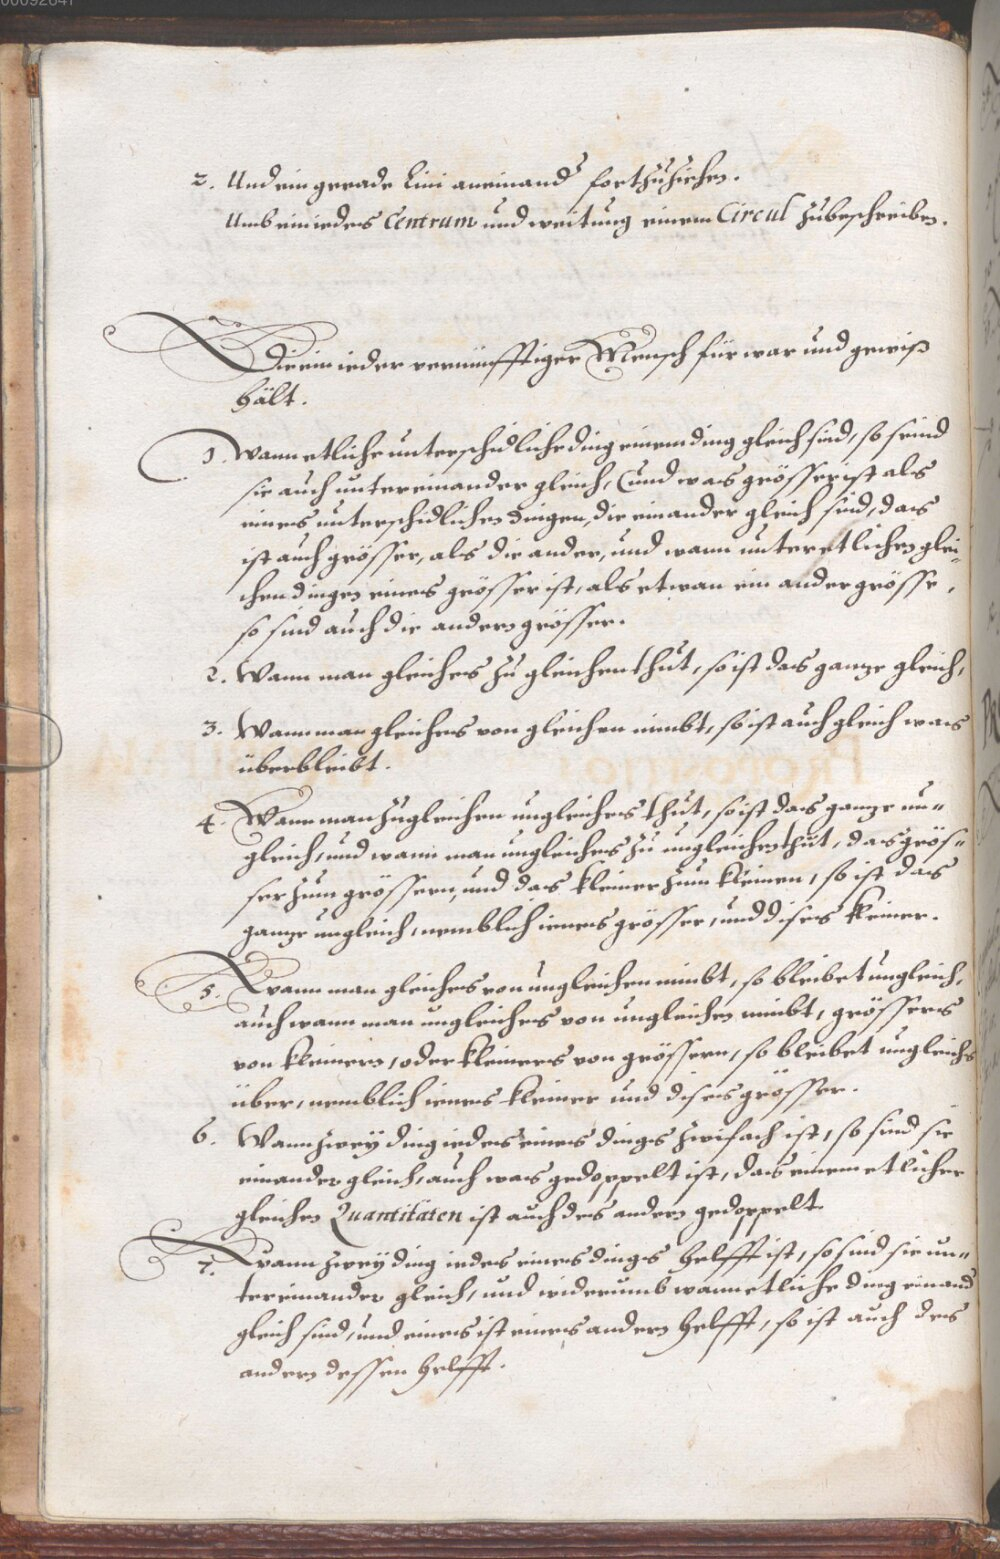 00092847
2. Und ein gerade Lini aneinand fortzuziehen.
Umb ein iedes Centrum und weitung einem Circul zubeschreiben.
Die ein ieder vernünfftiger Mensch für war und gewiß
hält.
1. Wann etliche unterschidliche ding einem ding gleich sind, so seind
sie auch untereinander gleich, (und was grösser ist als
eines unterschidlichen dingen, die einander gleich sind, das
ist auch grösser, als die ander, und wann unter etlichen glei-
chen dingen eines grösser ist, als etwan ein ander grösse,
so sind auch die andern grösser.
2. Wann man gleiches zu gleichen thut, so ist das gantze gleich,
3. Wann man gleiches von gleichen nimbt, so ist auch gleich was
überbleibt.
4. Wann man zugleichen ungleiches thut, so ist das gantze un-
gleich, und wann man ungleiches zu ungleichen thut, das grös-
ser zum grössern, und das kleiner zum kleinen, so ist das
gantze ungleich, nemblich ienes grösser, und dises kleiner.
5. Wann man gleiches von ungleichen nimbt, so bleibet ungleich,
auch wann man ungleiches von ungleichen nimbt, grössers
von kleinern, oder kleiners von grössern, so bleibet ungleichs
über, nemblich ienes kleiner und dises grösser.
6. Wann zwey ding iedes eines dings zwifach ist, so sind sie
einander gleich, auch was gedoppelt ist, das einem etlicher
gleichen Quantitäten ist auch des andern gedoppelt.
7. Wann zwey ding iedes eines dings helfft ist, so sind sie un-
tereinander gleich, und widerumb wann etliche ding einand
gleich sind, und eines ist eines andern helfft, so ist auch des
andern dessen helfft.